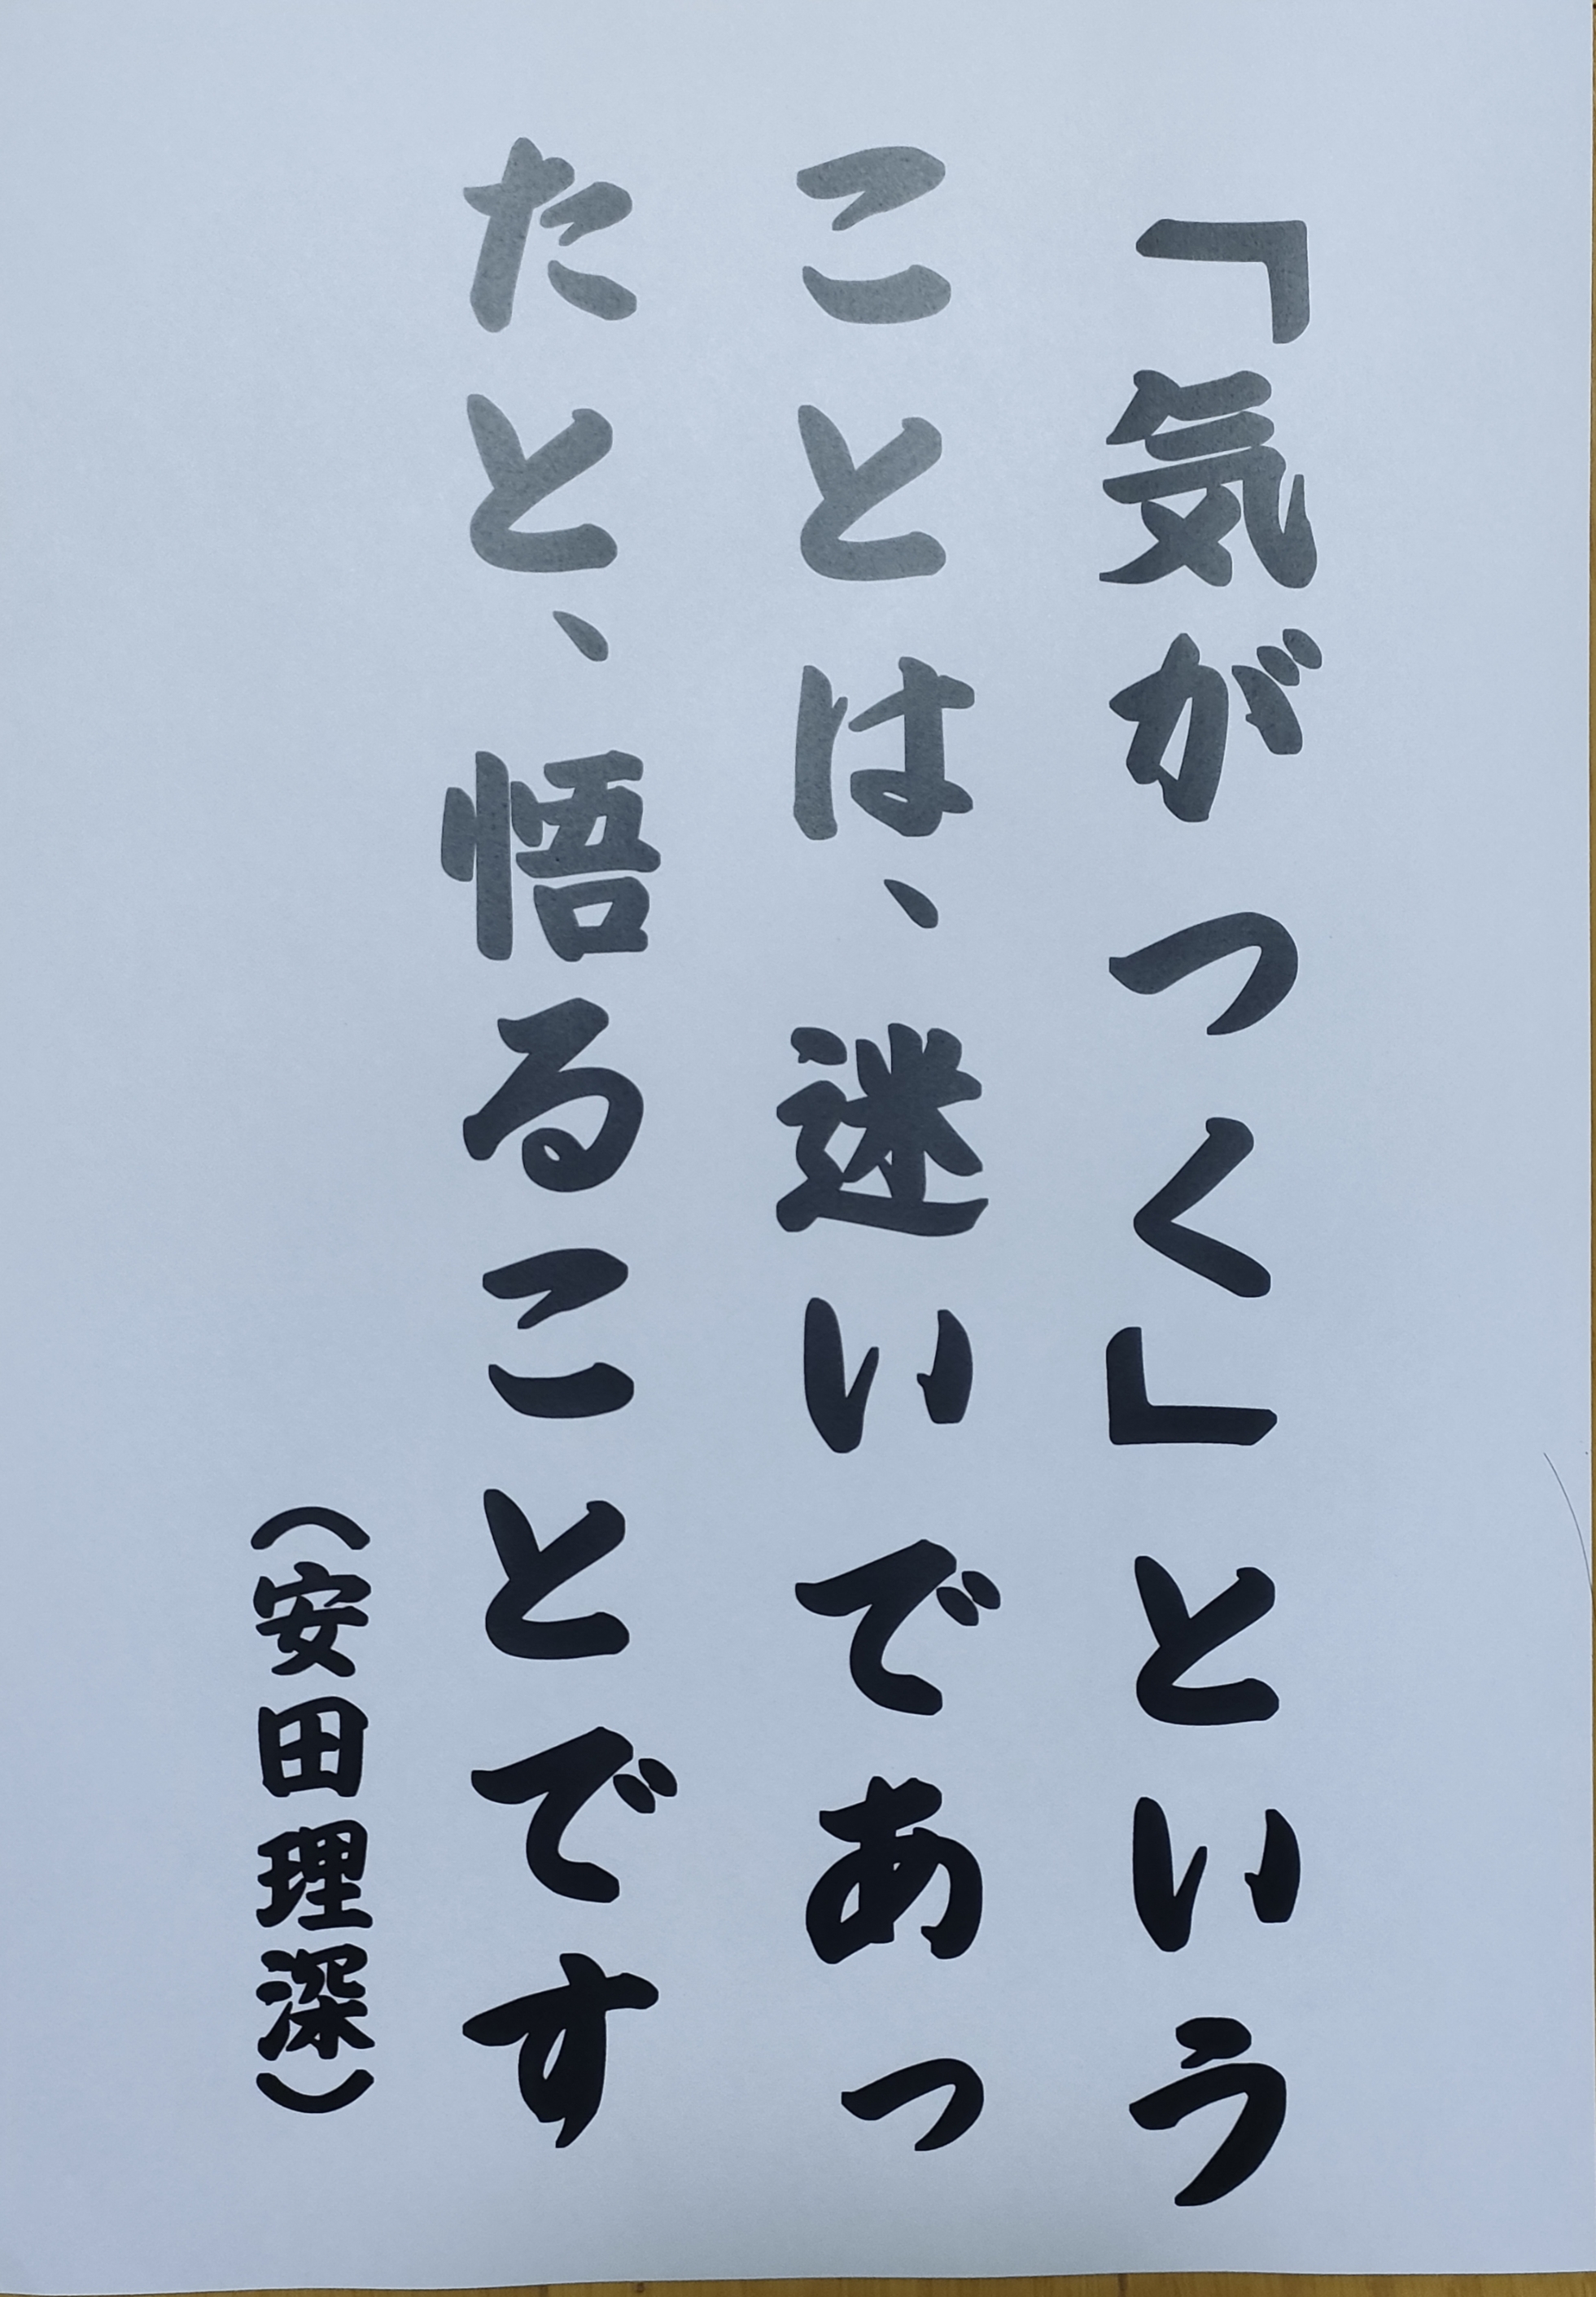 「気がつく」という
ことは、迷いであっ
たと、悟ることです
（安田理深）